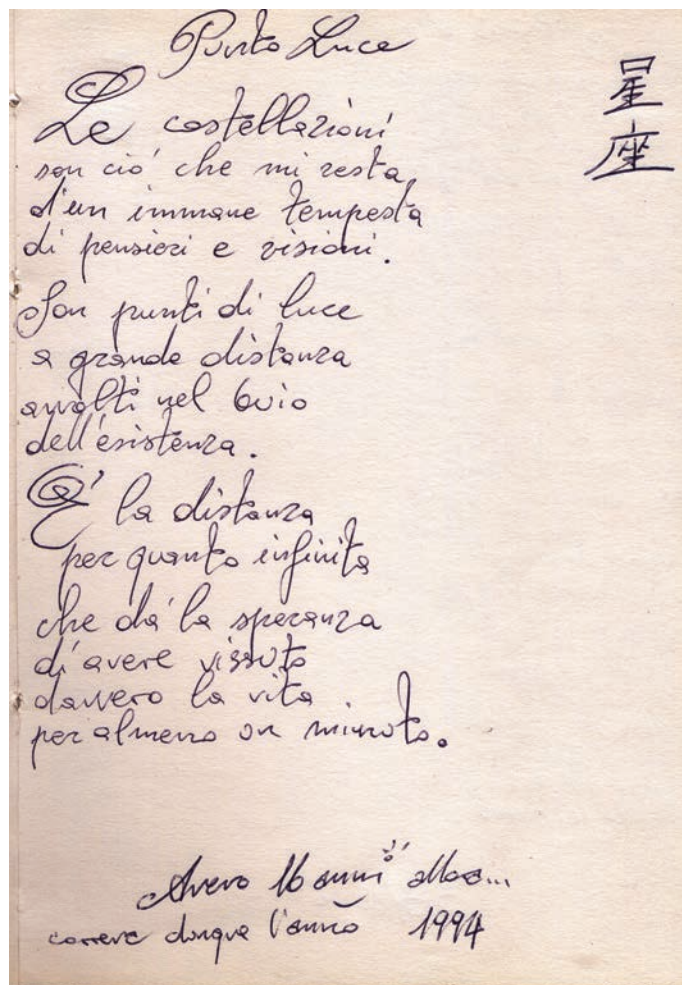 Punto Luce
星座
Le costellazioni
son ciò che mi resta
d'un immane tempesta
di pensieri e visioni.
Son punti di luce
a grande distanza
avvolti nel buio
dell'esistenza.
E' la distanza
per quanto infinita
che da' la speranza
di avere vissuto
davvero la vita
per almeno un minuto.
Avevo 16 anni allora...
correva dunque l'anno 1994